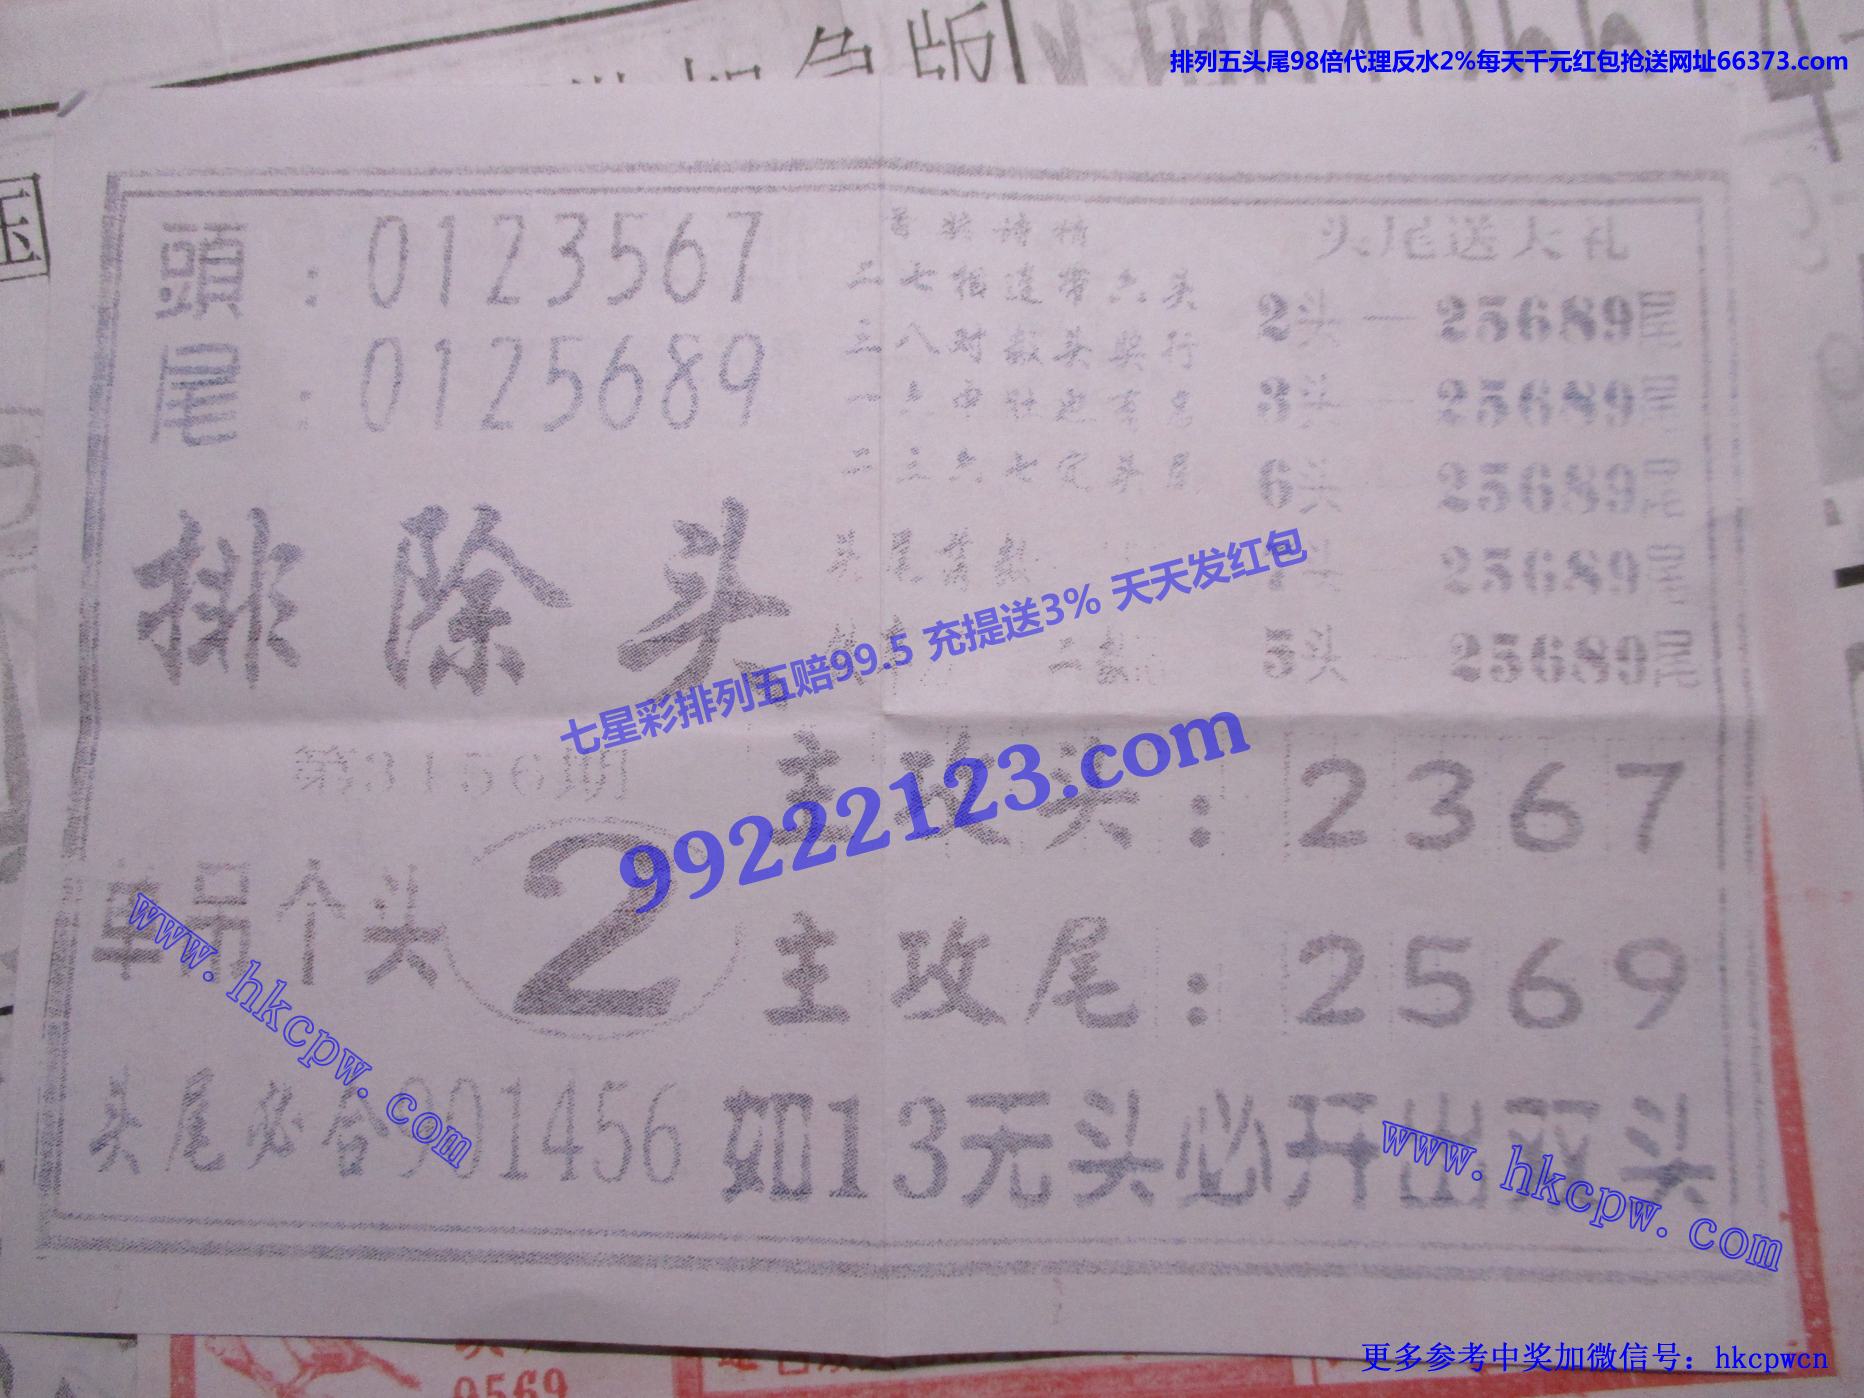 色版
排列五头尾98倍代理反水2%每天千元红包抢送网址66373.com
頭:0123567
尾:0125689
排除头
二七相连带六头
三八对数头奖行
二三六七定头尾
头尾送大礼
2头—25689尾
3头—25689尾
6头—25689尾
7头—25689尾
5头—25689尾
七星彩排列五赔99.5 充提送3% 天天发红包
99222123.com
第3156期
单吊个头 2
主攻头:2367
主攻尾:2569
头尾必合901456
如13无头必开出双头
www.hkcpw.com
www.hkcpw.com
0569
更多参考中奖加微信号：hkcpwcn